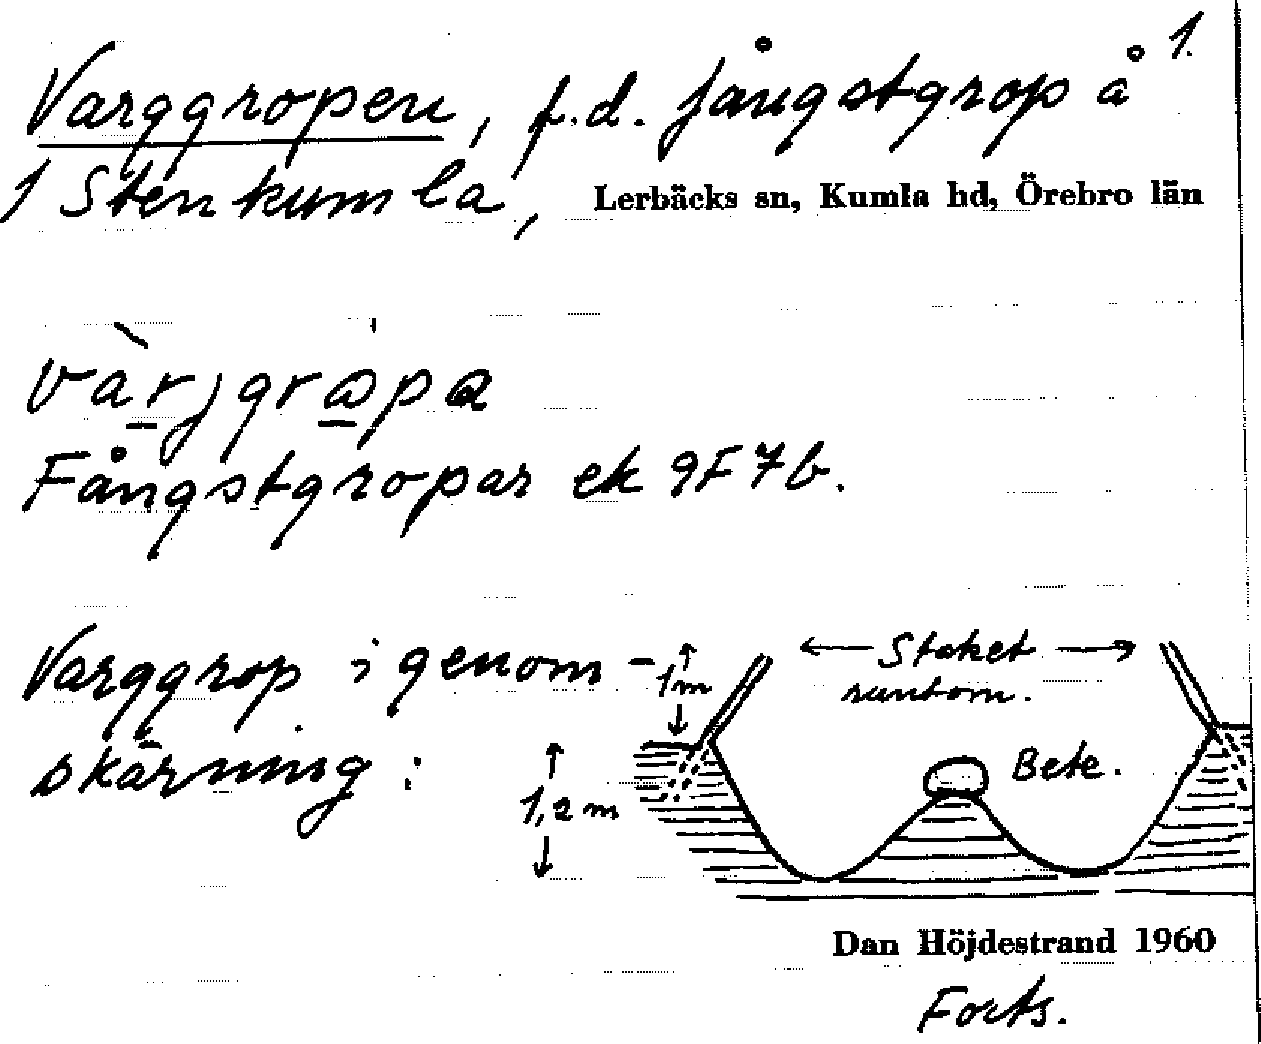 1.
Varggropen, f.d. fångstgrop å
1 Stenkumla, Lerbäcks sn, Kumla hd, Örebro län
Fångstgropar ek 9F7b.
Varggrop i genom-
skärning:
1m
← Staket →
runtom.
Bete.
1,2 m
Dan Höjdestrand 1960
Forts.